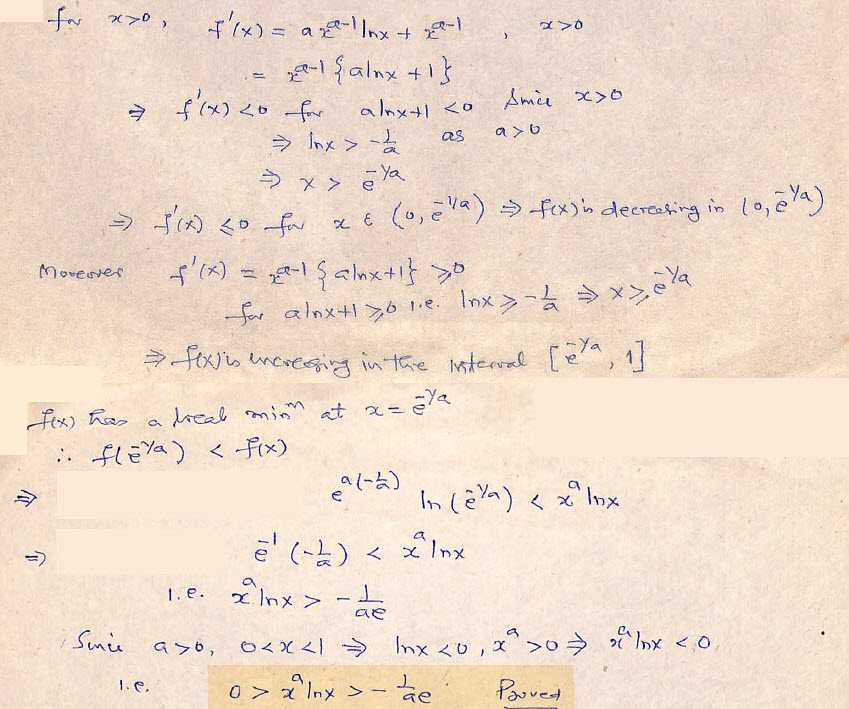 for x>0, f'(x) = a x^{a-1} lnx + x^{a-1} , x>0
= x^{a-1} {a lnx + 1}
⇒ f'(x) <0 for a lnx+1 <0 Since x>0
⇒ lnx > -1/a as a>0
⇒ x > e^{-1/a}
⇒ f'(x) ≤0 for x ∈ (0, e^{-1/a}) ⇒ f(x) is decreasing in (0, e^{-1/a})
Moreover f'(x) = x^{a-1} {a lnx+1} ≥0
for a lnx+1 ≥0 i.e. lnx ≥ -1/a ⇒ x ≥ e^{-1/a}
⇒ f(x) is increasing in the interval [e^{-1/a}, 1]
f(x) has a local min^m at x = e^{-1/a}
∴ f(e^{-1/a}) < f(x)
⇒ e^{a(-1/a)} ln(e^{-1/a}) < x^a lnx
⇒ e^{-1} (-1/a) < x^a lnx
i.e. x^a lnx > -1/ae
Since a>0, 0<x<1 ⇒ lnx <0, x^a >0 ⇒ x^a lnx <0
i.e. 0 > x^a lnx > -1/ae Proved